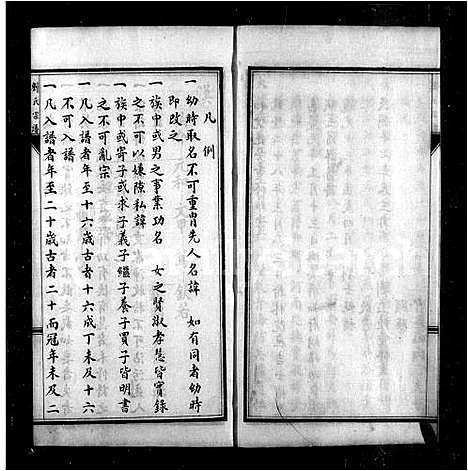 凡例
一幼時取名不可重冑先人名諱 如有同者幼時
即改之
一族中或男之事業功名 女之賢淑孝慈皆實錄
之不可以嫌隙私諱
一族中或寄子或求子義子繼子養子買子皆明書
之不可亂宗
一凡入譜者年至十六歲古者十六成丁未及十六
不可入譜
一凡入譜者年至二十歲古者二十而冠年未及二
氏宗譜